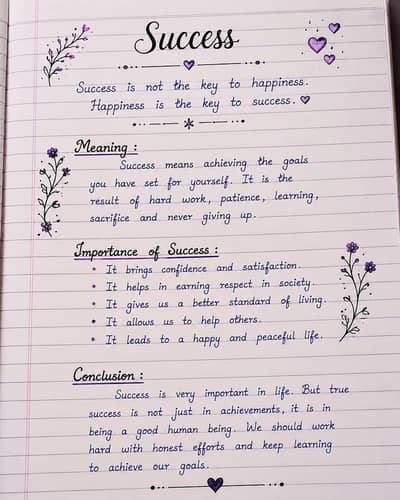 Success
Success is not the key to happiness.
Happiness is the key to success.
Meaning :
Success means achieving the goals
you have set for yourself. It is the
result of hard work, patience, learning,
sacrifice and never giving up.
Importance of Success :
• It brings confidence and satisfaction.
• It helps in earning respect in society.
• It gives us a better standard of living.
• It allows us to help others.
• It leads to a happy and peaceful life.
Conclusion :
Success is very important in life. But true
success is not just in achievements, it is in
being a good human being. We should work
hard with honest efforts and keep learning
to achieve our goals.